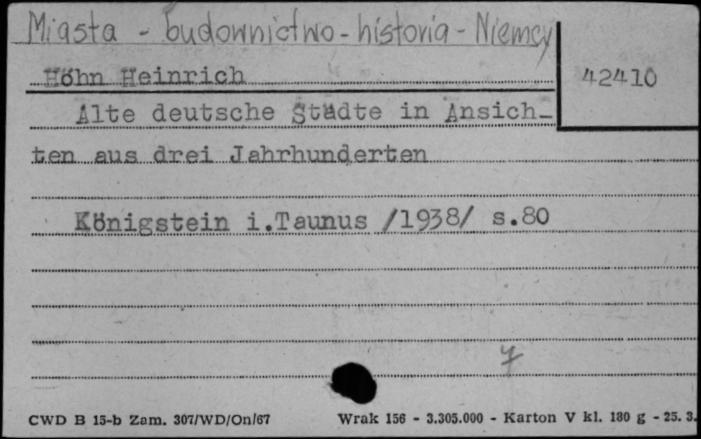 Miasta - budownictwo - historia - Niemcy
Höhn Heinrich
42410
Alte deutsche Städte in Ansich-
ten aus drei Jahrhunderten
Königstein i.Taunus /1938/ s.80
7
CWD B 15-b Zam. 307/WD/On/67 Wrak 156 - 3.305.000 - Karton V kl. 180 g - 25. 3.